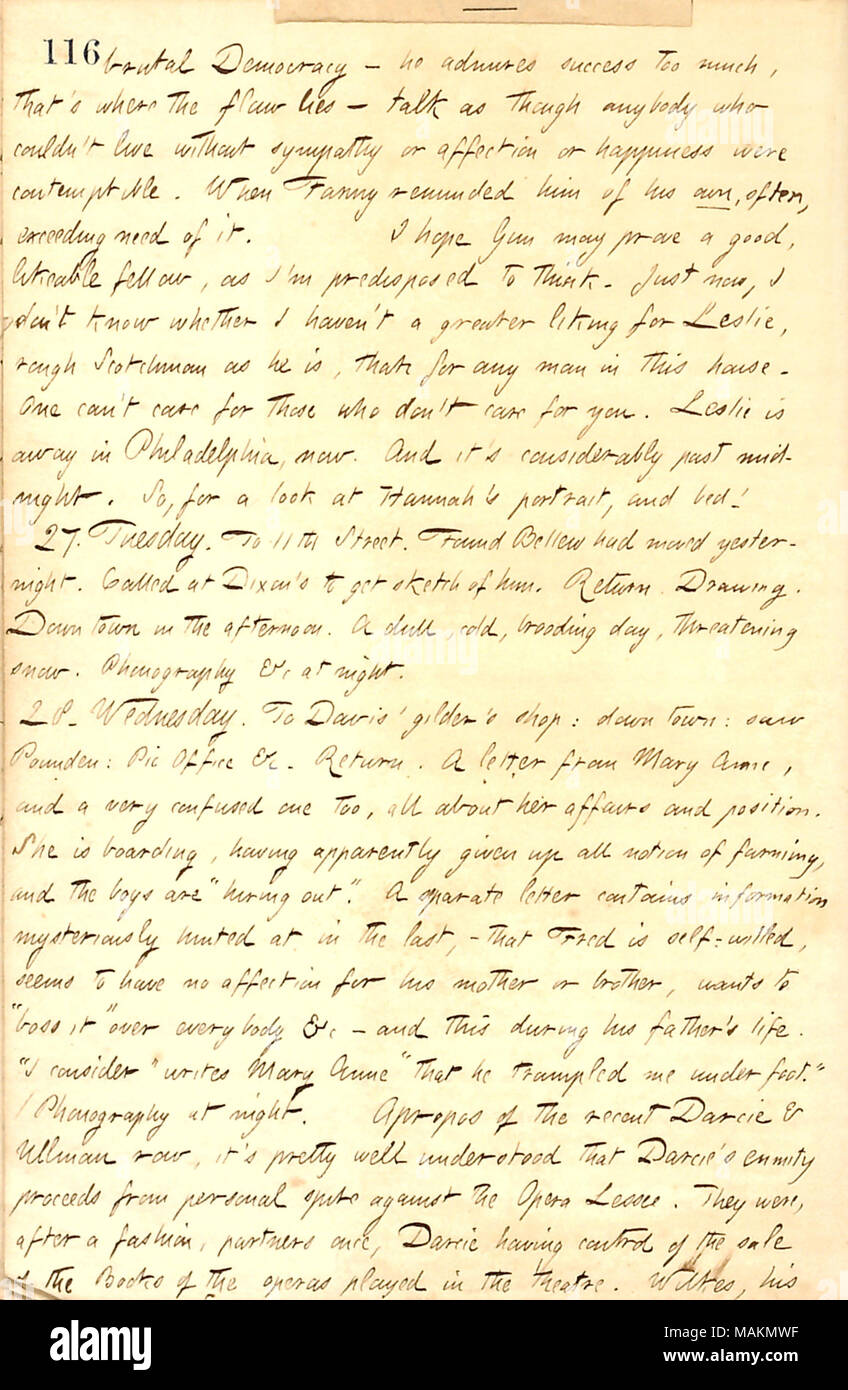 116 brutal Democracy — he admires success too much,
that's where the flaw lies — talk as though anybody who
couldn't live without sympathy or affection or happiness were
contemptible. When Fanny reminded him of his own, often,
exceeding need of it. I hope Gun may prove a good,
likeable fellow, as I'm predisposed to think. Just now, I
don't know whether I haven't a greater liking for Leslie,
rough Scotchman as he is, than for any man in this house.
One can't care for those who don't care for you. Leslie is
away in Philadelphia, now. And it's considerably past mid-
night. So, for a look at Hannah's portrait, and bed!
27. Tuesday. To 11th Street. Found Bellew had moved yester-
night. Called at Dixon's to get sketch of him. Return. Drawing.
Down town in the afternoon. A dull, cold, brooding day, threatening
snow. Phonography &c at night.
28. Wednesday. To Davis' gilder's shop: down town: saw
Pounden: Pic Office &c. Return. A letter from Mary Anne,
and a very confused one too, all about her affairs and position.
She is boarding, having apparently given up all notion of farming,
and the boys are "hiring out". A separate letter contains information
mysteriously hinted at in the last, - that Fred is self-willed,
seems to have no affection for his mother or brother, wants to
"boss it" over everybody &c — and this during his father's life.
"I consider" writes Mary Anne "that he trampled me under foot."
/ Phonography at night. Apropos of the recent Darcie &
Ullman row, it's pretty well understood that Darcie's enmity
proceeds from personal spite against the Opera Lessee. They were,
after a fashion, partners once, Darcie having control of the sale
of the Books of the operas played in the theatre. Wilkes, his
alamy
Image ID: MAKMWF
www.alamy.com